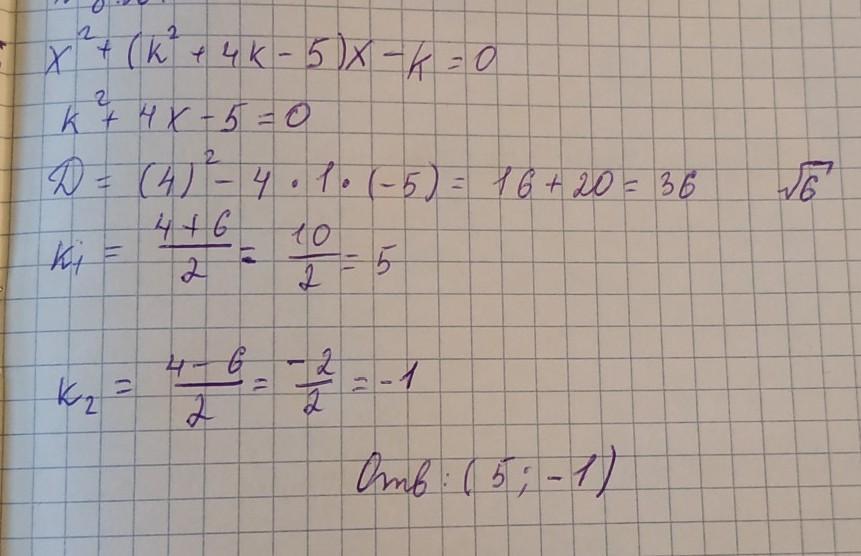 x² + (k² + 4k - 5)x - k = 0
k² + 4x - 5 = 0
D = (4)² - 4 · 1 · (-5) = 16 + 20 = 36 √6
k₁ = (4+6)/2 = 10/2 = 5
k₂ = (4-6)/2 = -2/2 = -1
Отв: (5; -1)